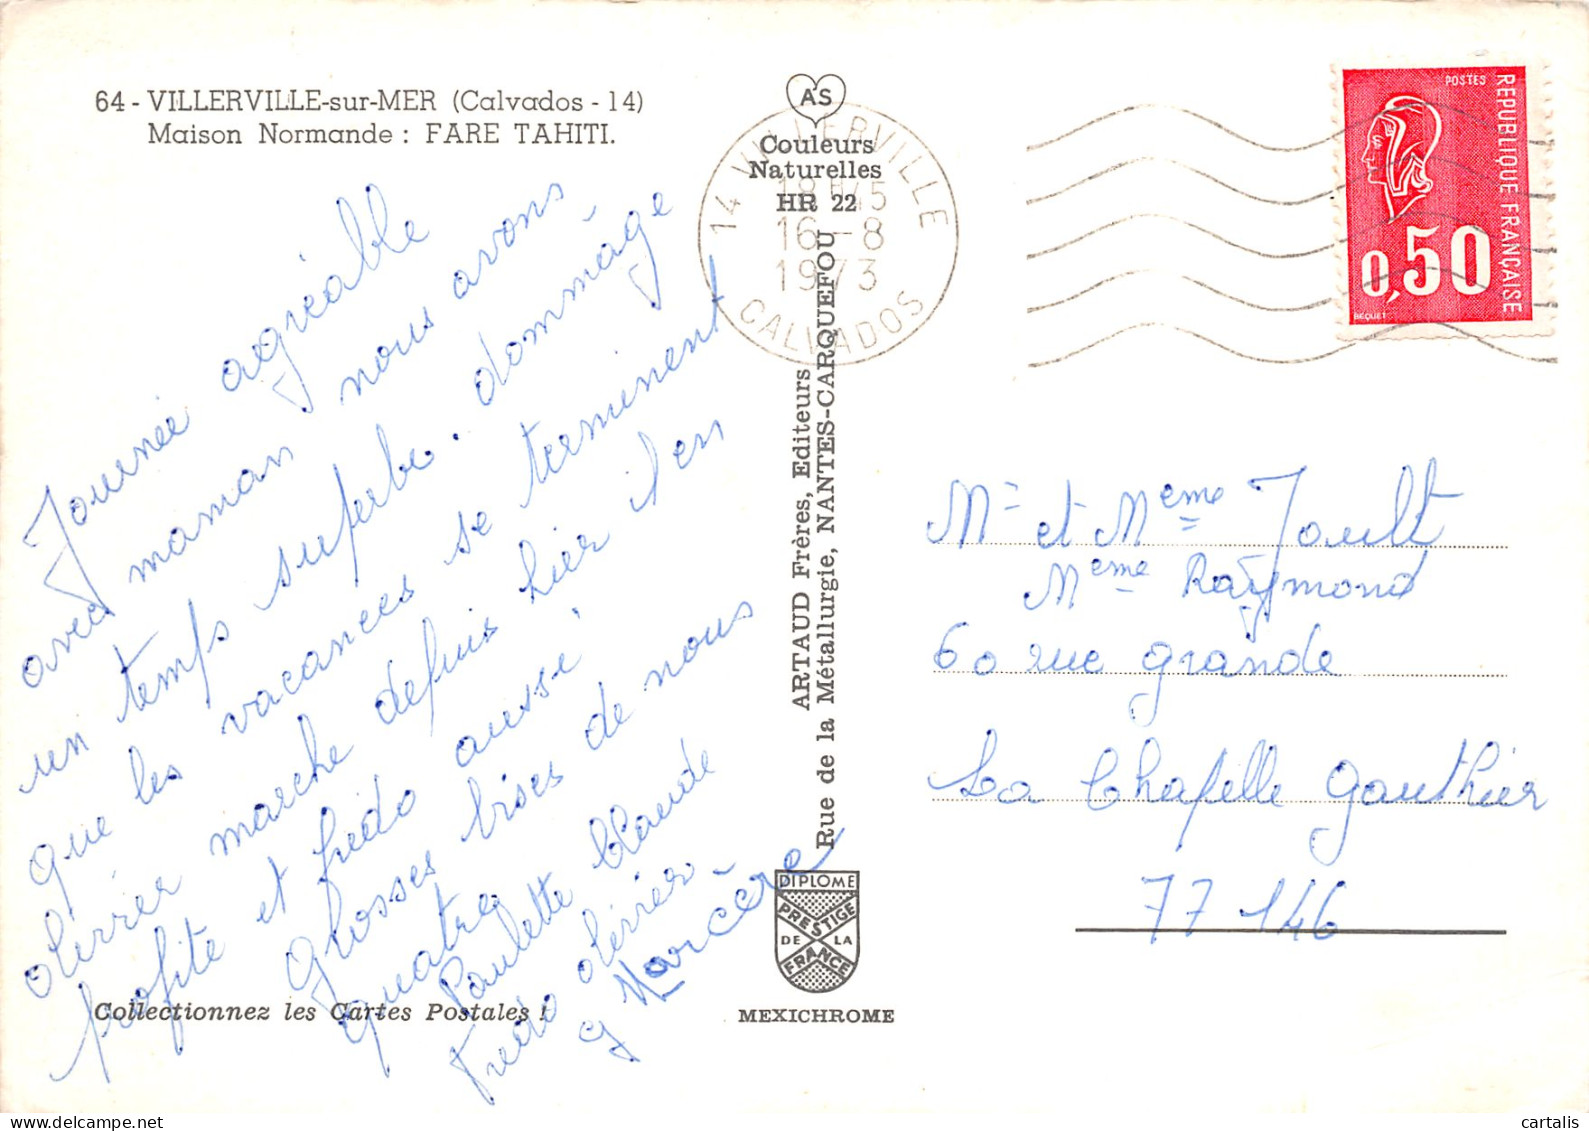 64 - VILLERVILLE-sur-MER (Calvados - 14)
Maison Normande : FARE TAHITI.
Journée agréable
avec maman nous avons
un temps superbe. dommage
que les vacances se terminent
olivier marche depuis hier il en
profite et fredo aussi
grosses bises de nous
quatre
Paulette Claude
fredo olivier
Collectionnez les Cartes Postales !
AS
Couleurs
Naturelles
HR 22
ARTAUD Frères, Editeurs
Rue de la Métallurgie, NANTES-CARQUEFOU
DIPLOME
PRESTIGE
DE LA
FRANCE
MEXICHROME
14 VILLERVILLE
18H45
16-8
1973
CALVADOS
POSTES
REPUBLIQUE FRANÇAISE
0,50
BEQUET
Mr et Meme Joult
Meme Raymond
60 rue grande
La Chapelle Gauthier
77 146
cartalis